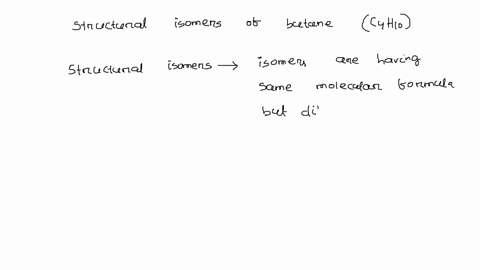 Structural isomers of butane (C4H10)
Structural isomers → isomers are having
same molecular formula
but di